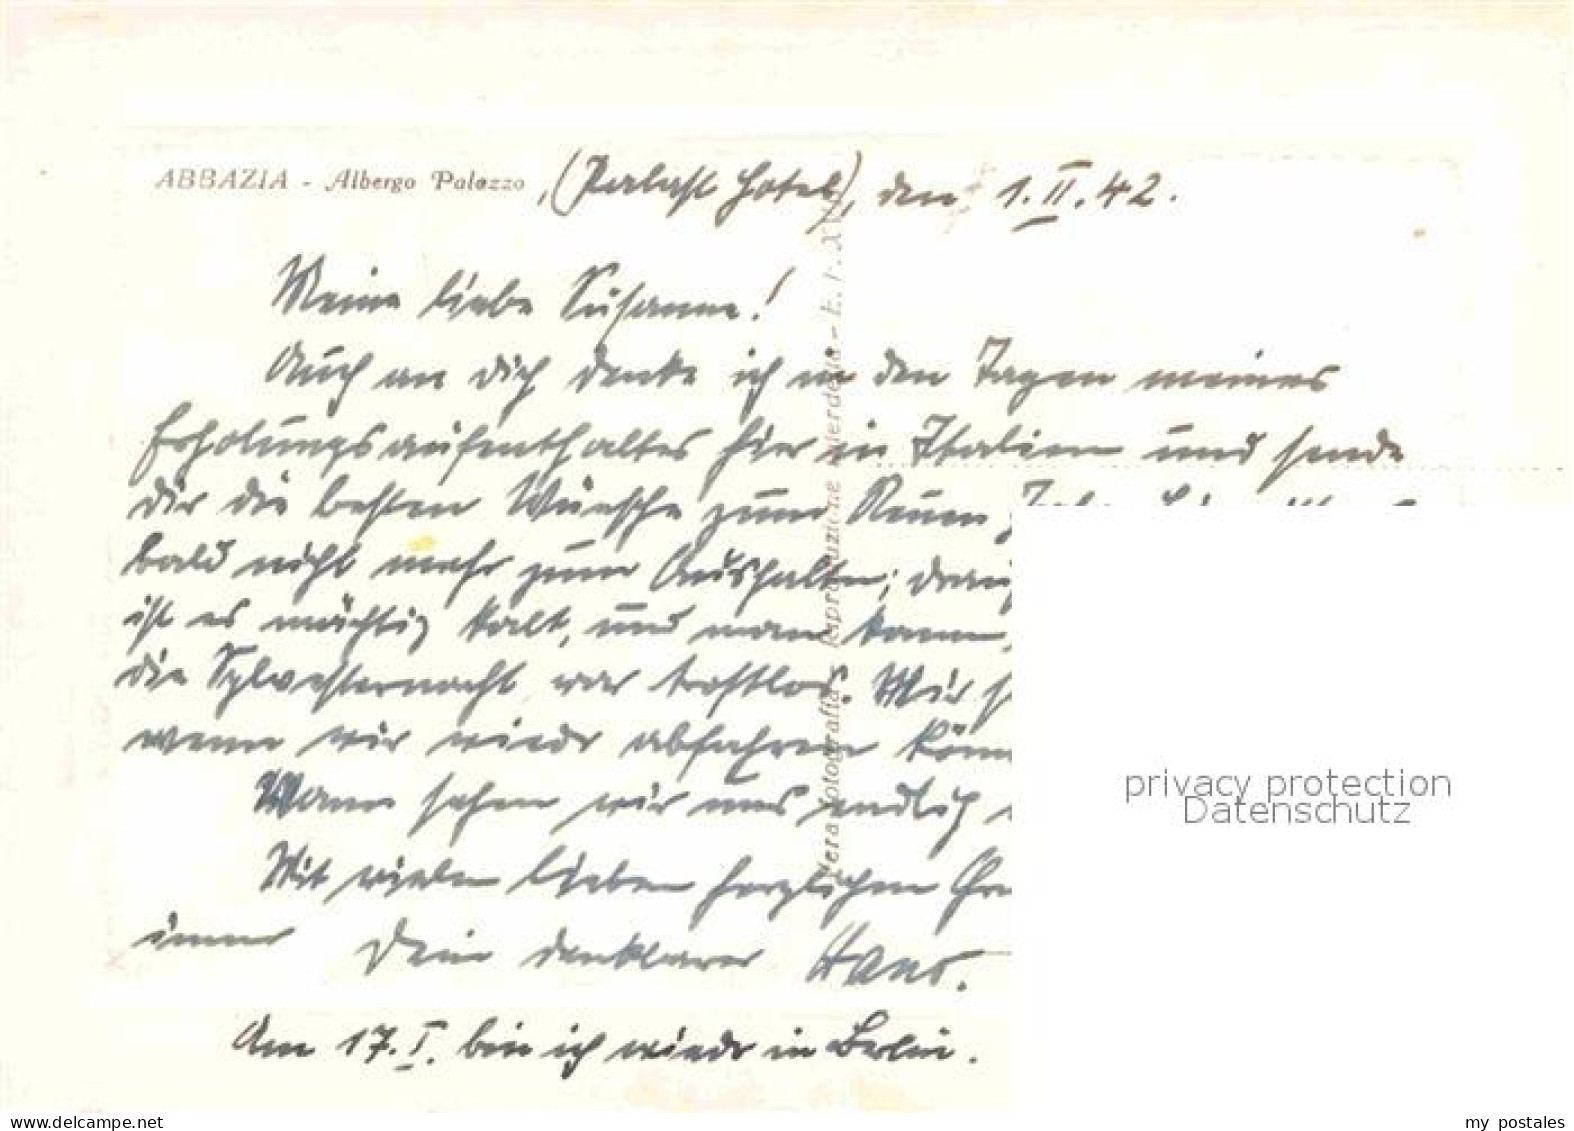 ABBAZIA - Albergo Palazzo, (Palast Hotel), den 1.II.42.
Meine liebe Susanne!
Auch an Dich denke ich in den Tagen meines
Erholungsaufenthaltes hier in Italien und sende
Dir die besten Wünsche zum Neuen
bald nicht mehr zum Aushalten; drau
ist es mächtig kalt, und man kann
die Sylvesternacht war trostlos. Wir
wenn wir wieder abfahren könn
Wann sehen wir uns endlich
Mit vielen lieben herzlichen Gr
immer Dein dankbarer Hans.
Am 17.I. bin ich wieder in Berlin.
Vera fotografia
privacy protection
Datenschutz
www.delcampe.net
my postales